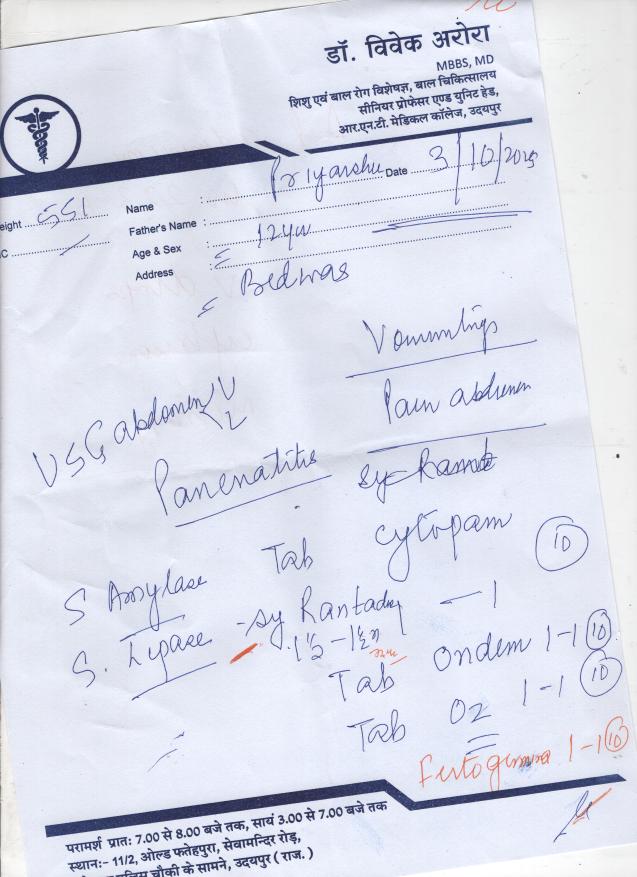 डॉ. विवेक अरोरा
MBBS, MD
शिशु एवं बाल रोग विशेषज्ञ, बाल चिकित्सालय
सीनियर प्रोफेसर एण्ड यूनिट हेड,
आर.एन.टी. मेडिकल कॉलेज, उदयपुर
eight
Name : Priyanshu Date 3/10/2025
Father's Name :
Age & Sex : 12yr
Address : Bedwas
Vommtings
Pain abdomen
USG abdomen
Pancreatitis
Tab cytopam 10
S Amylase
S. Lipase
- Sy Rantadry - 1
1½ - 1½
Tab Ondem 1-1 10
Tab O2 1-1 10
1-1 10
परामर्श प्रातः 7.00 से 8.00 बजे तक, सायं 3.00 से 7.00 बजे तक
स्थान:- 11/2, ओल्ड फतेहपुरा, सेवामन्दिर रोड़,
चौकी के सामने, उदयपुर ( राज. )